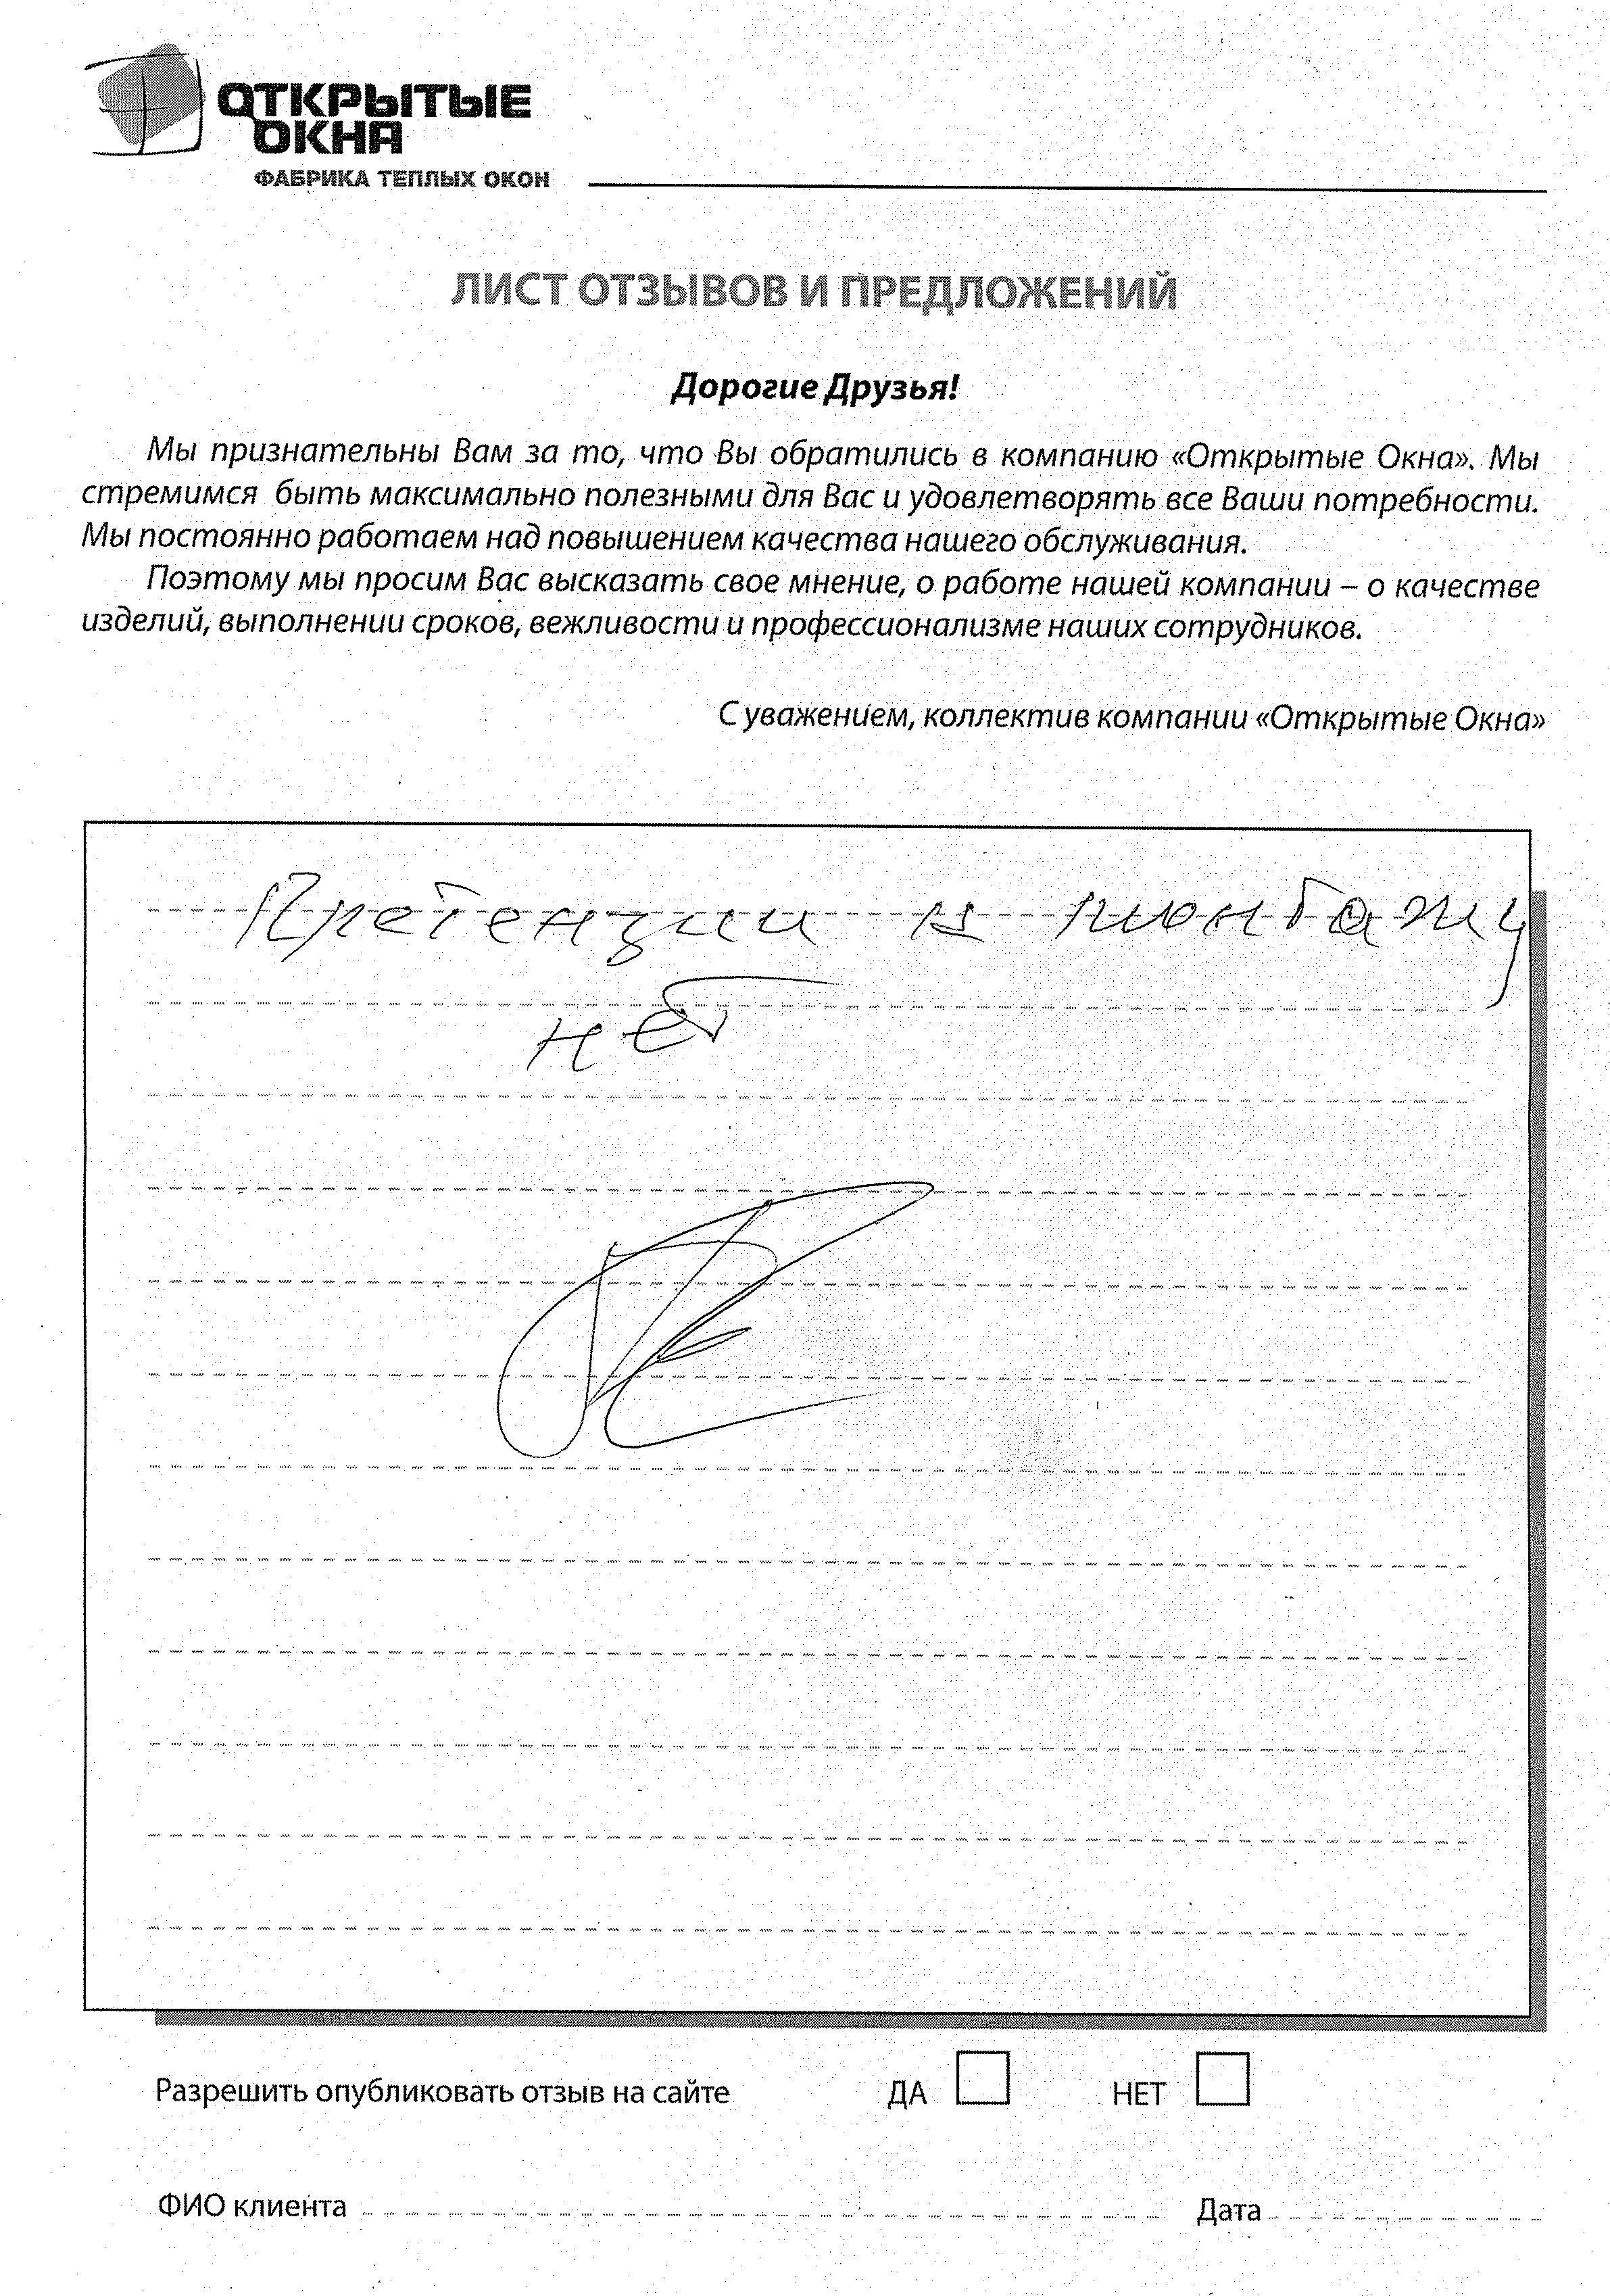 ОТКРЫТЫЕ
ОКНА
ФАБРИКА ТЕПЛЫХ ОКОН
ЛИСТ ОТЗЫВОВ И ПРЕДЛОЖЕНИЙ
Дорогие Друзья!
Мы признательны Вам за то, что Вы обратились в компанию «Открытые Окна». Мы
стремимся быть максимально полезными для Вас и удовлетворять все Ваши потребности.
Мы постоянно работаем над повышением качества нашего обслуживания.
Поэтому мы просим Вас высказать свое мнение, о работе нашей компании – о качестве
изделий, выполнении сроков, вежливости и профессионализме наших сотрудников.
С уважением, коллектив компании «Открытые Окна»
Претензии к монтажу
нет
Разрешить опубликовать отзыв на сайте ДА НЕТ
ФИО клиента Дата